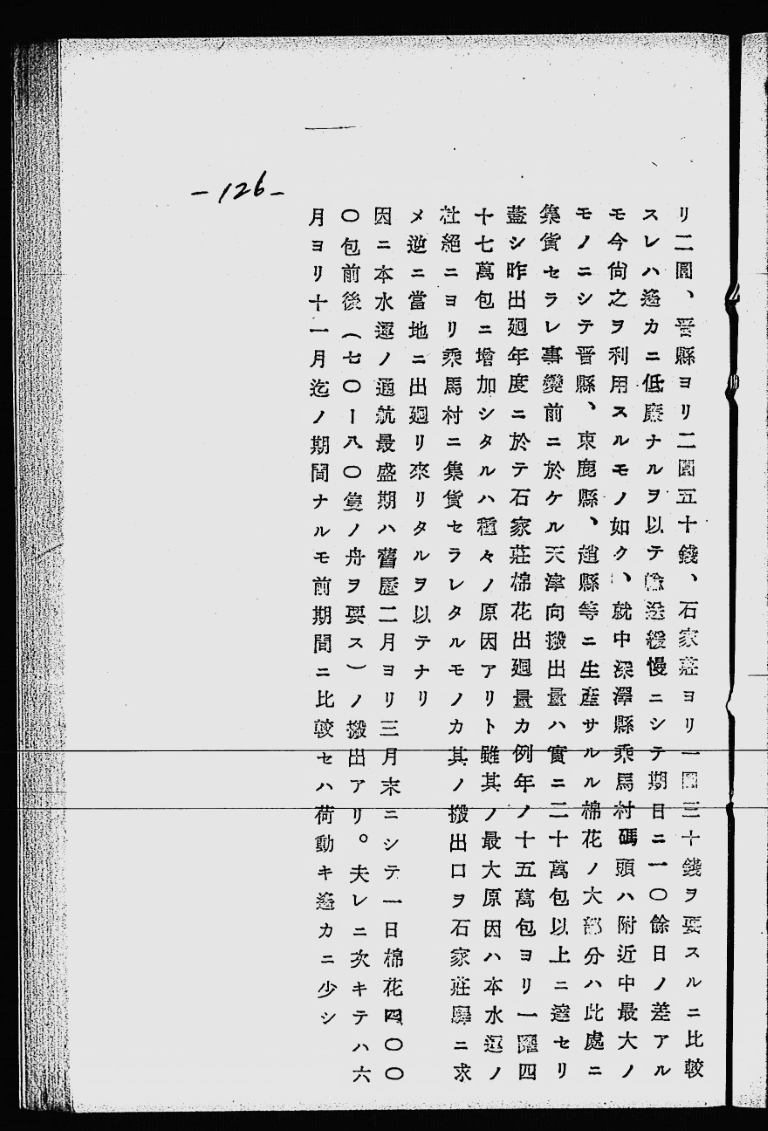 リ二圓、晋縣ヨリ二圓五十錢、石家莊ヨリ一圓三十錢ヲ要スルニ比較
スレハ遙カニ低廉ナルヲ以テ輸送緩慢ニシテ期日ニ一〇餘日ノ差アル
モ今尙之ヲ利用スルモノ如ク、就中深澤縣乘馬村碼頭ハ附近中最大ノ
モノニシテ晋縣、東鹿縣、趙縣等ニ生產サルル棉花ノ大部分ハ此處ニ
集貨セラレ事變前ニ於ケル天津向搬出量ハ實ニ二十萬包以上ニ達セリ
蓋シ昨出廻年度ニ於テ石家莊棉花出廻量カ例年ノ十五萬包ヨリ一躍四
十七萬包ニ增加シタルハ種々ノ原因アリト雖其ノ最大原因ハ本水運ノ
杜絕ニヨリ乘馬村ニ集貨セラレタルモノカ其ノ搬出口ヲ石家莊驛ニ求
メ逆ニ當地ニ出廻リ來リタルヲ以テナリ
因ニ本水運ノ通航最盛期ハ舊歷二月ヨリ三月末ニシテ一日棉花四〇〇
〇包前後(七〇ー八〇隻ノ舟ヲ要ス)ノ搬出アリ。夫レニ次キテハ六
月ヨリ十一月迄ノ期間ナルモ前期間ニ比較セハ荷動キ遙カニ少シ
-126-